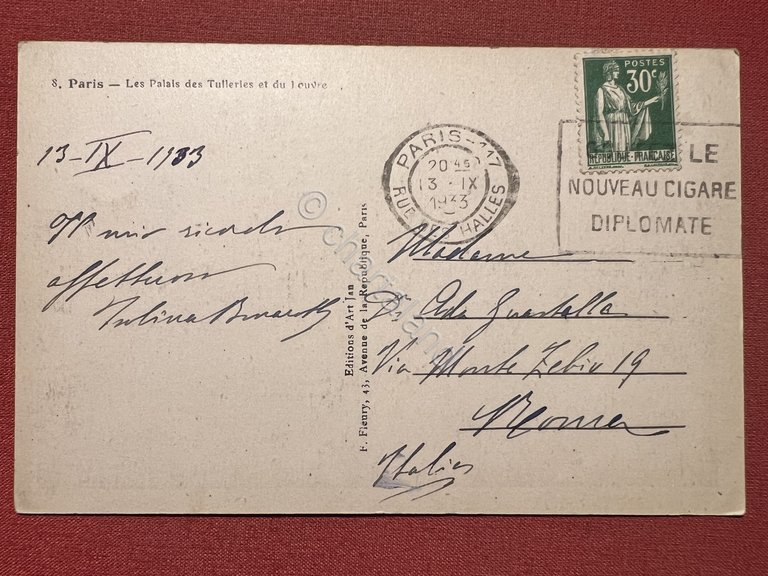 8. Paris — Les Palais des Tuileries et du Louvre
13-IX-1933
Il mio ricordo
affettuoso
POSTES
30c
REPUBLIQUE FRANÇAISE
PARIS-117
20 45
13 IX
1933
RUE DES HALLES
LE
NOUVEAU CIGARE
DIPLOMATE
Editions d'Art Jan
F. Fleury, 43, Avenue de la République, Paris
Madame
Ada Guastalla
Via Monte Zebio 19
Roma
Italia
©